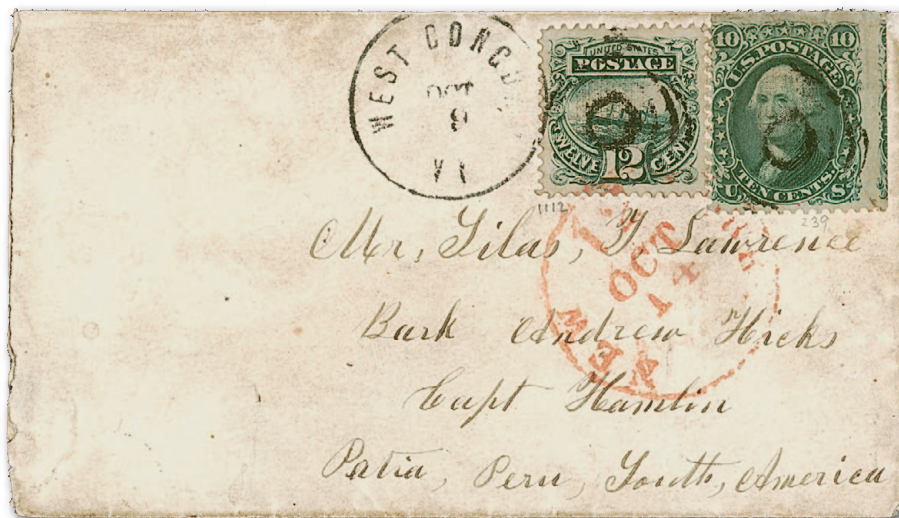 WEST CONCO
OCT
9
VT
UNITED STATES
POSTAGE
TWELVE CENTS
12
10 10
U.S. POSTAGE
TEN CENTS
U S
1112
239
NEW
OCT
14
Mr, Silas, T, Lawrence
Bark Andrew Hicks
Capt Hamlin
Patia, Peru, South, America